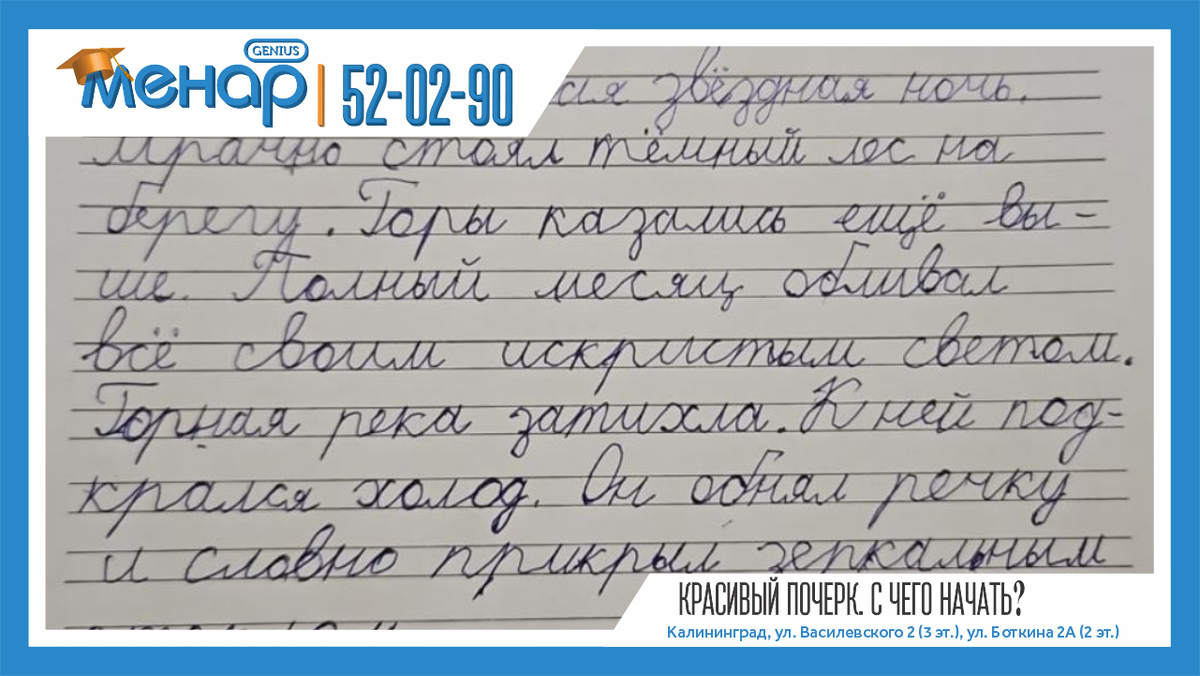 GENIUS
менар | 52-02-90
звёздная ночь.
Мрачно стоял тёмный лес на
берегу. Горы казались ещё вы-
ше. Полный месяц обливал
всё своим искристым светом.
Горная река затихла. К ней под-
крался холод. Он обнял речку
и словно прикрыл зеркальным
КРАСИВЫЙ ПОЧЕРК. С ЧЕГО НАЧАТЬ?
Калининград, ул. Василевского 2 (3 эт.), ул. Боткина 2А (2 эт.)